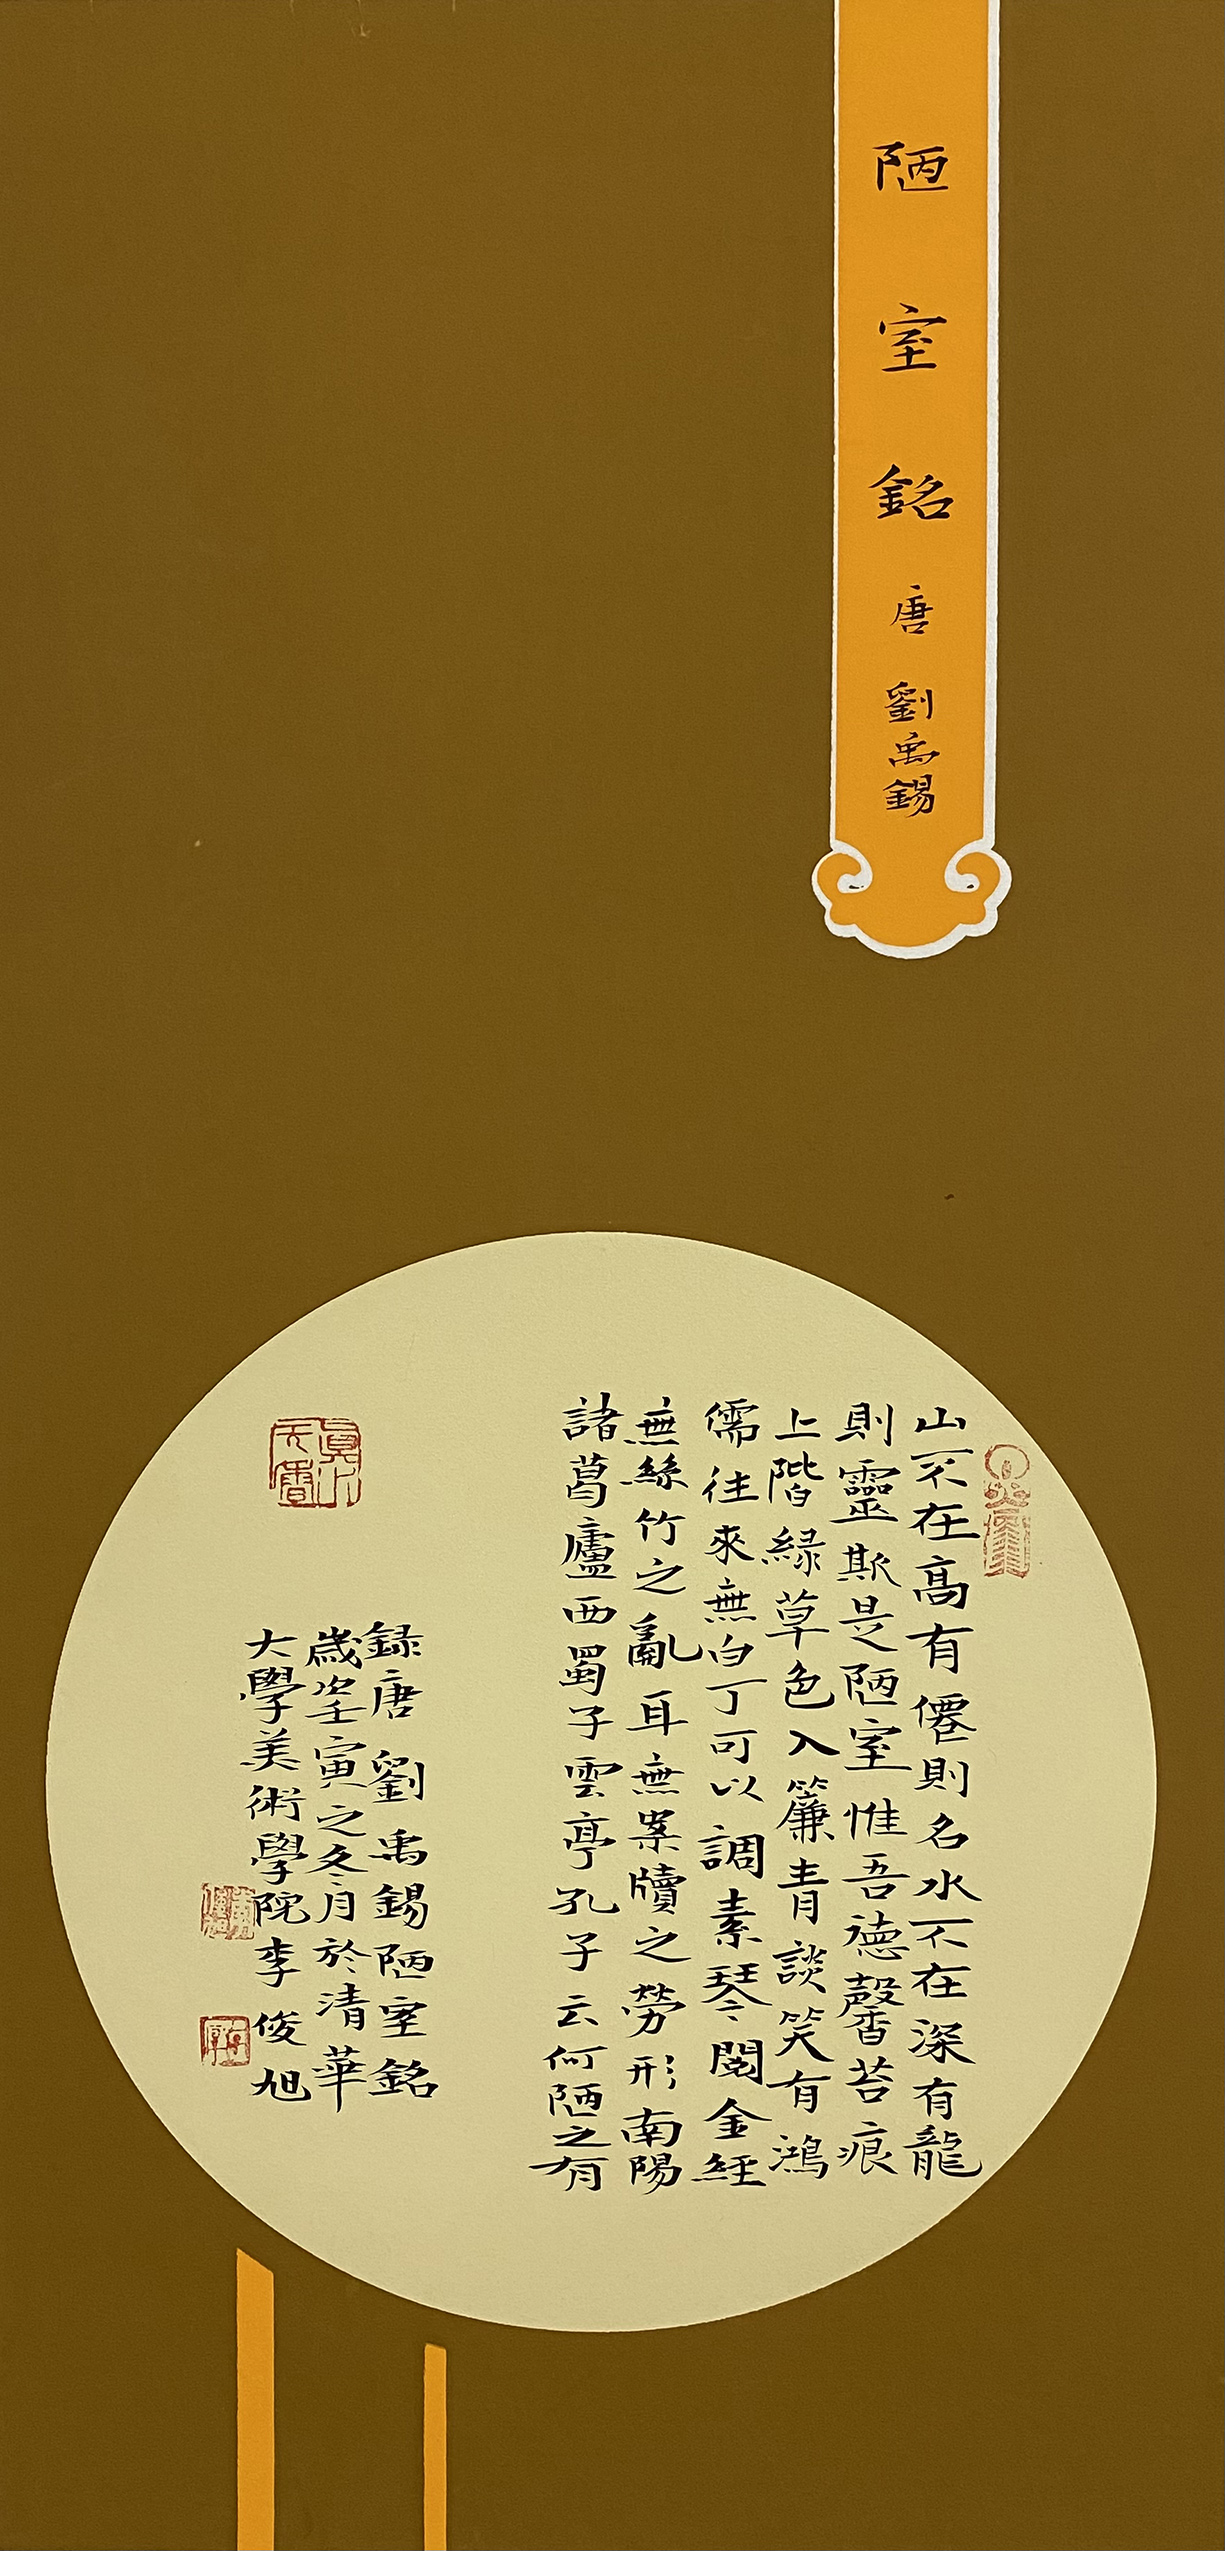 陋室銘 唐 劉禹錫
山不在高有僊則名水不在深有龍
則靈斯是陋室惟吾德馨苔痕
上階緑草色入簾青談笑有鴻
儒往來無白丁可以調素琴閱金經
無絲竹之亂耳無案牘之勞形南陽
諸葛廬西蜀子雲亭孔子云何陋之有
録唐劉禹錫陋室銘
歲次壬寅之冬月於清華
大學美術學院李俊旭